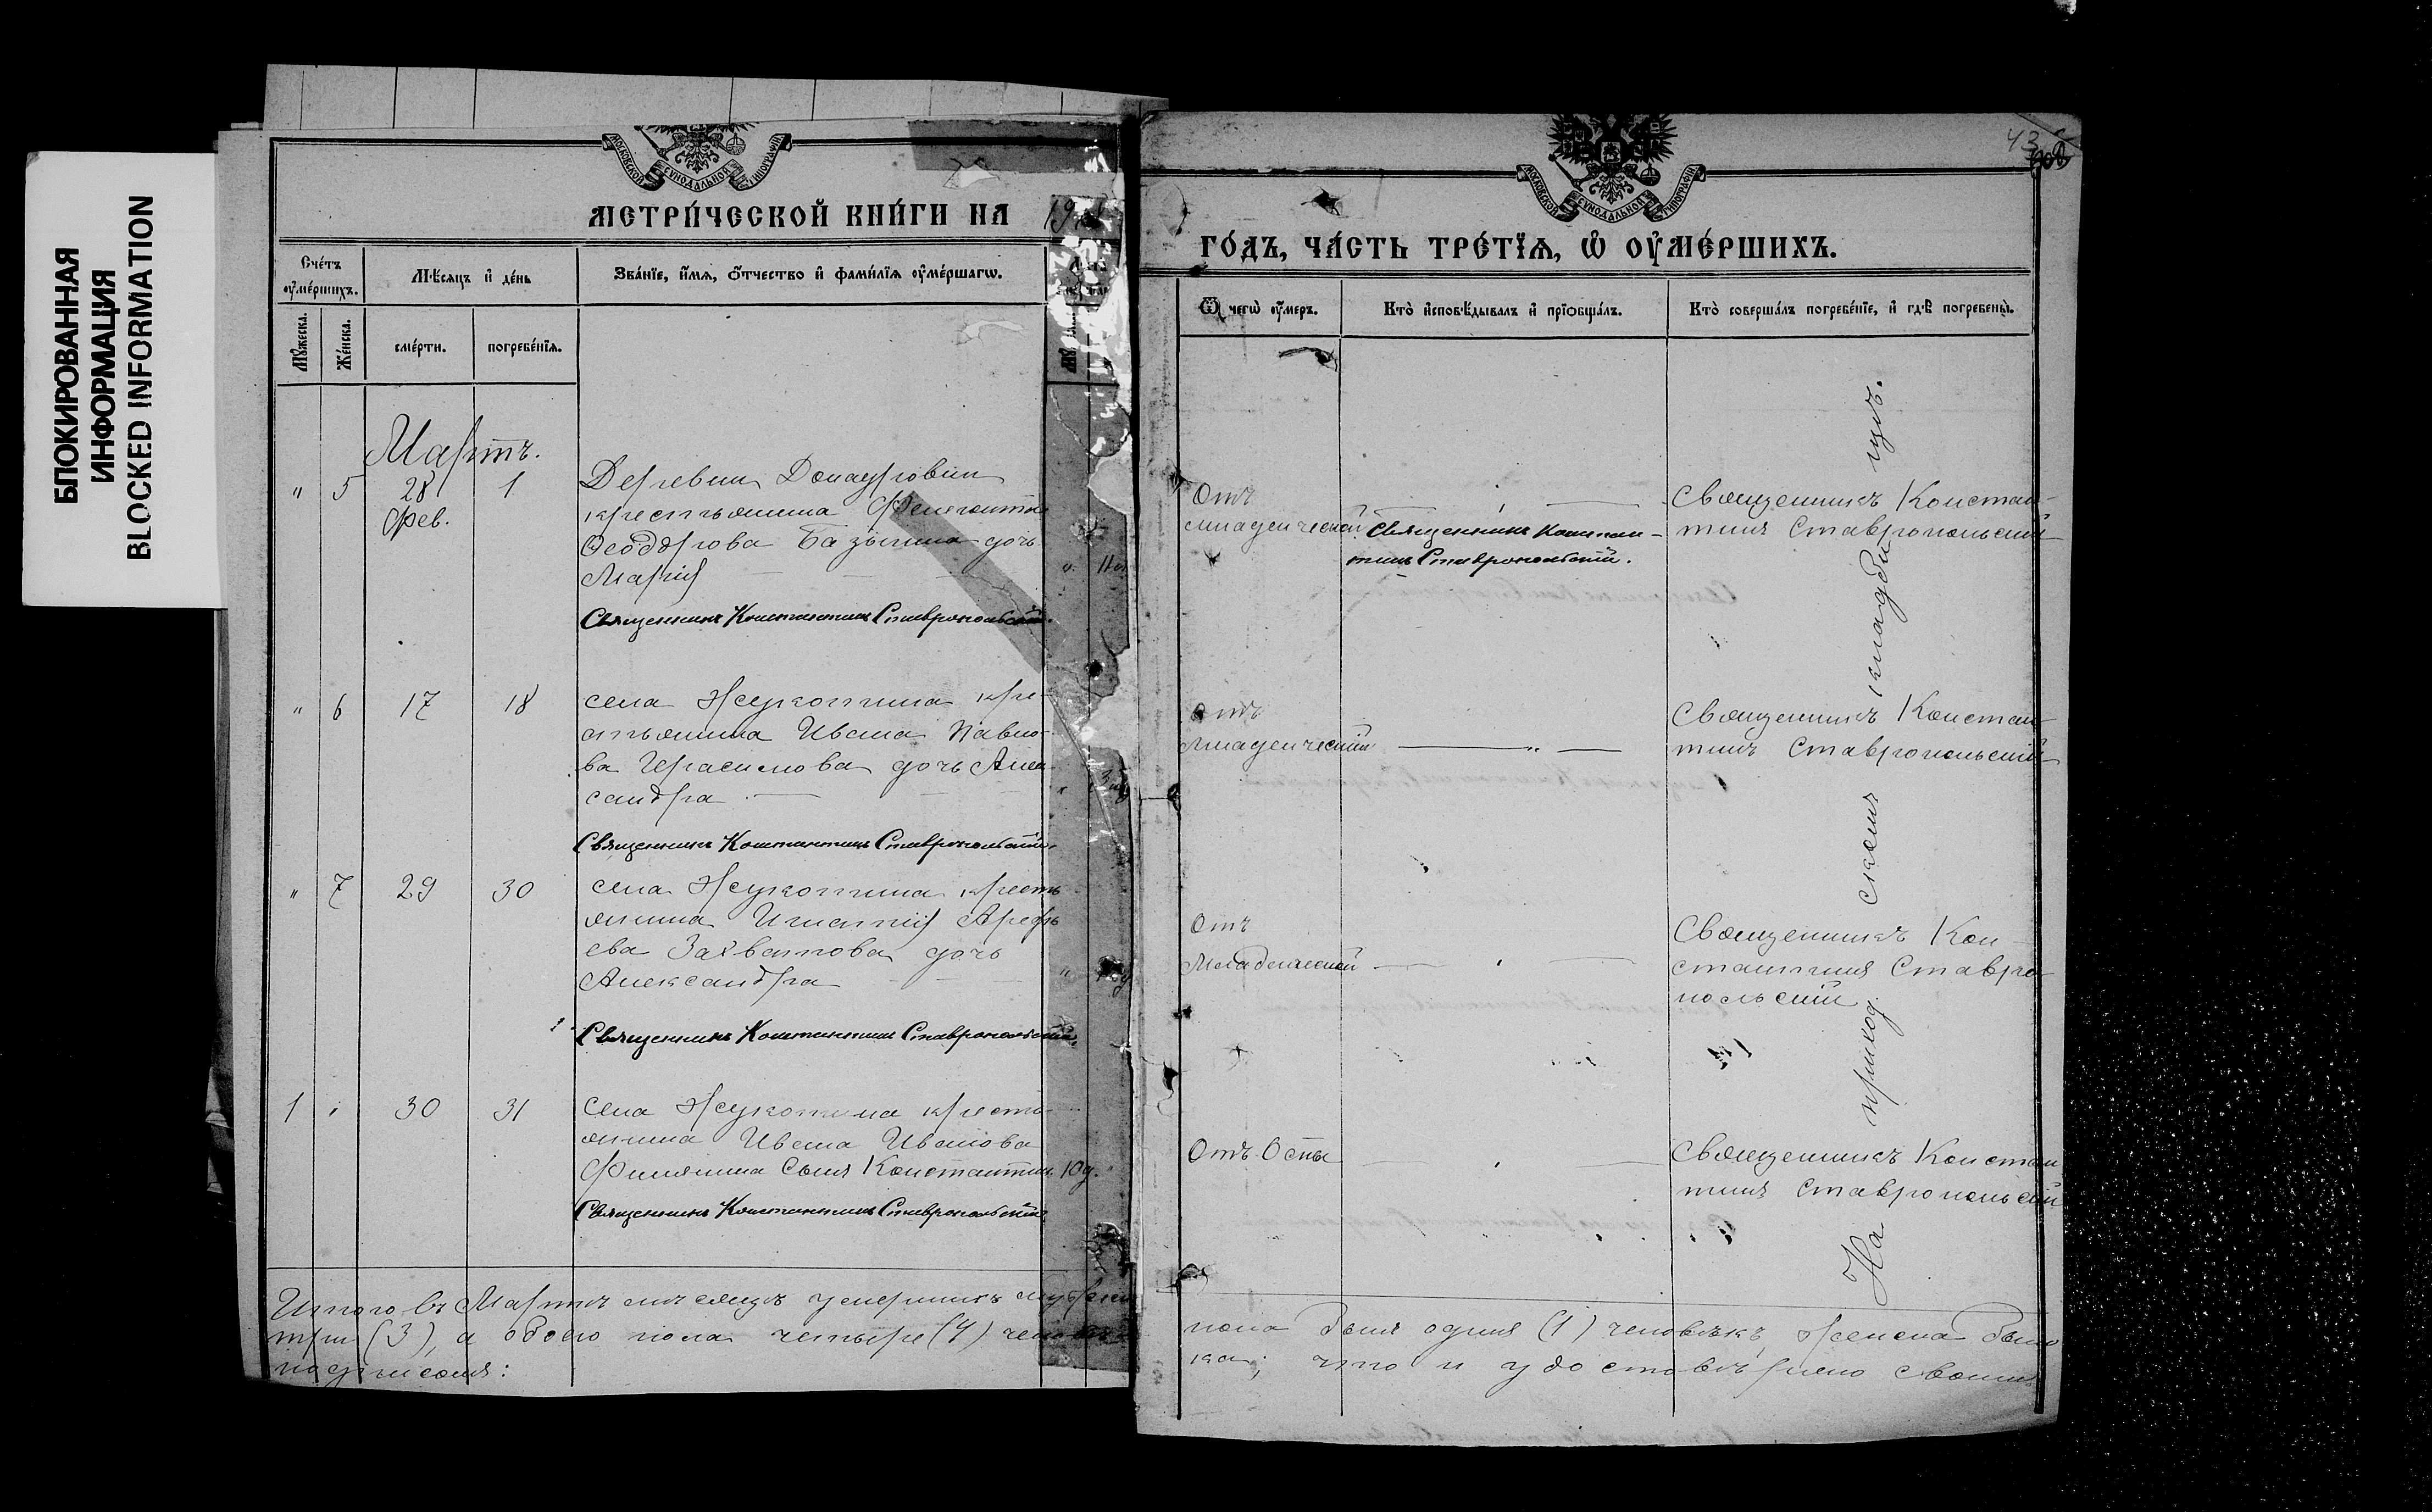 БЛОКИРОВАННАЯ
ИНФОРМАЦИЯ
BLOCKED INFORMATION
МОСКОВСКОЙ СѴНОДАЛЬНОЙ ТИПОГРАФІИ
МЕТРИ́ЧЕСКОЙ КНИ́ГИ НА
Сче́тъ ѹ҆ме́ршихъ.
Мѣ́сяцъ и҆ де́нь
Зва́нїе, и҆́мѧ, ѻ҆́тчество и҆ фамѝлїѧ ѹ҆ме́ршагѡ.
Мꙋ́жеска.
Же́нска.
сме́рти.
погребе́нїѧ.
Мартъ.
" 5 28 1 Деревни Донауровки
Фев. крестьянина
Ѳеодорова дочь
Маріи
Священникъ Константинъ Ставропольскій.
" 6 17 18 села Жукотина кре-
стьянина Ивана Павло-
ва Герасимова дочь Алек-
сандра
Священникъ Константинъ Ставропольскій.
" 7 29 30 села Жукотина кресть
янина Игнатія Арефь
ева Захватова дочь
Александра
Священникъ Константинъ Ставропольскій.
1 " 30 31 села Жукотина кресть-
янина Ивана Иванова
Филянина сынъ Константинъ 10д.
Священникъ Константинъ Ставропольскій.
Итого въ Мартѣ мѣсяцѣ умершихъ
три (3), а обоего пола четыре (4)
подписомъ:
43
МОСКОВСКОЙ СѴНОДАЛЬНОЙ ТИПОГРАФІИ
ГО́ДЪ, ЧА́СТЬ ТРЕ́ТЇѦ, Ѡ҆ ОУ҆МЕ́РШИХЪ.
Ѿ чегѡ̀ ѹ҆́меръ.
Кто̀ и҆сповѣ́дывалъ и҆ прїѡбща́лъ.
Кто̀ соверша́лъ погребе́нїе, и҆ гдѣ̀ погребены̀.
Отъ
младенческой Священникъ Констан-
тинъ Ставропольскій.
Священникъ Констан-
тинъ Ставропольскій
Отъ
младенческой
Священникъ Констан-
тинъ Ставропольскій
Отъ
младенческой
Священникъ Кон-
стантинъ Ставро-
польскій
Отъ Оспы
Священникъ Констан
тинъ Ставропольскій
На приход скомъ кладби щѣ.
пола былъ одинъ (1) человѣкъ, женска было
ка; что и удостовѣрено своимъ